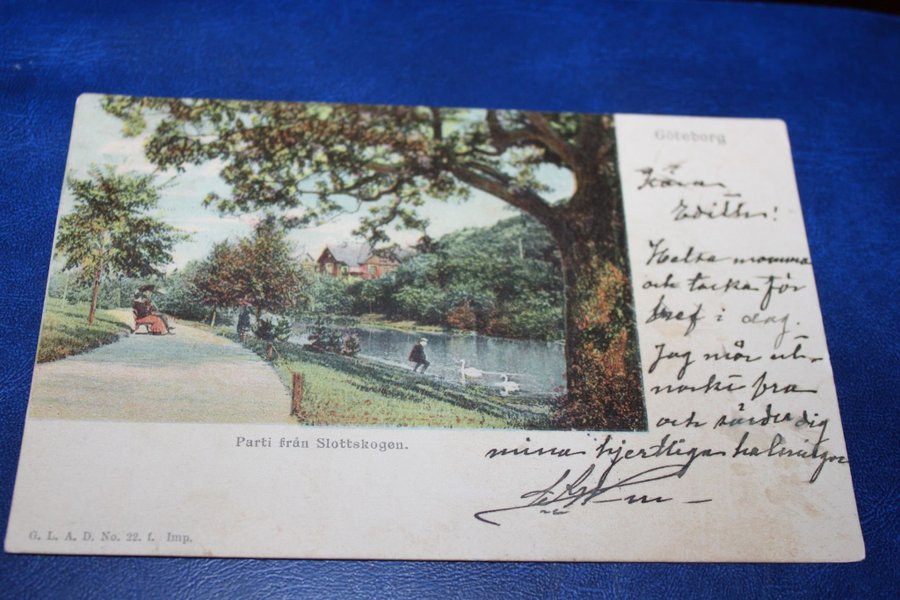 Göteborg
Kära
Edith!
Helsa mamma
och tacka för
bref i dag.
Jag mår ut-
märkt bra
och sänder dig
mina hjertliga helsningar
Parti från Slottskogen.
G. L. A. D. No. 22. f. Imp.